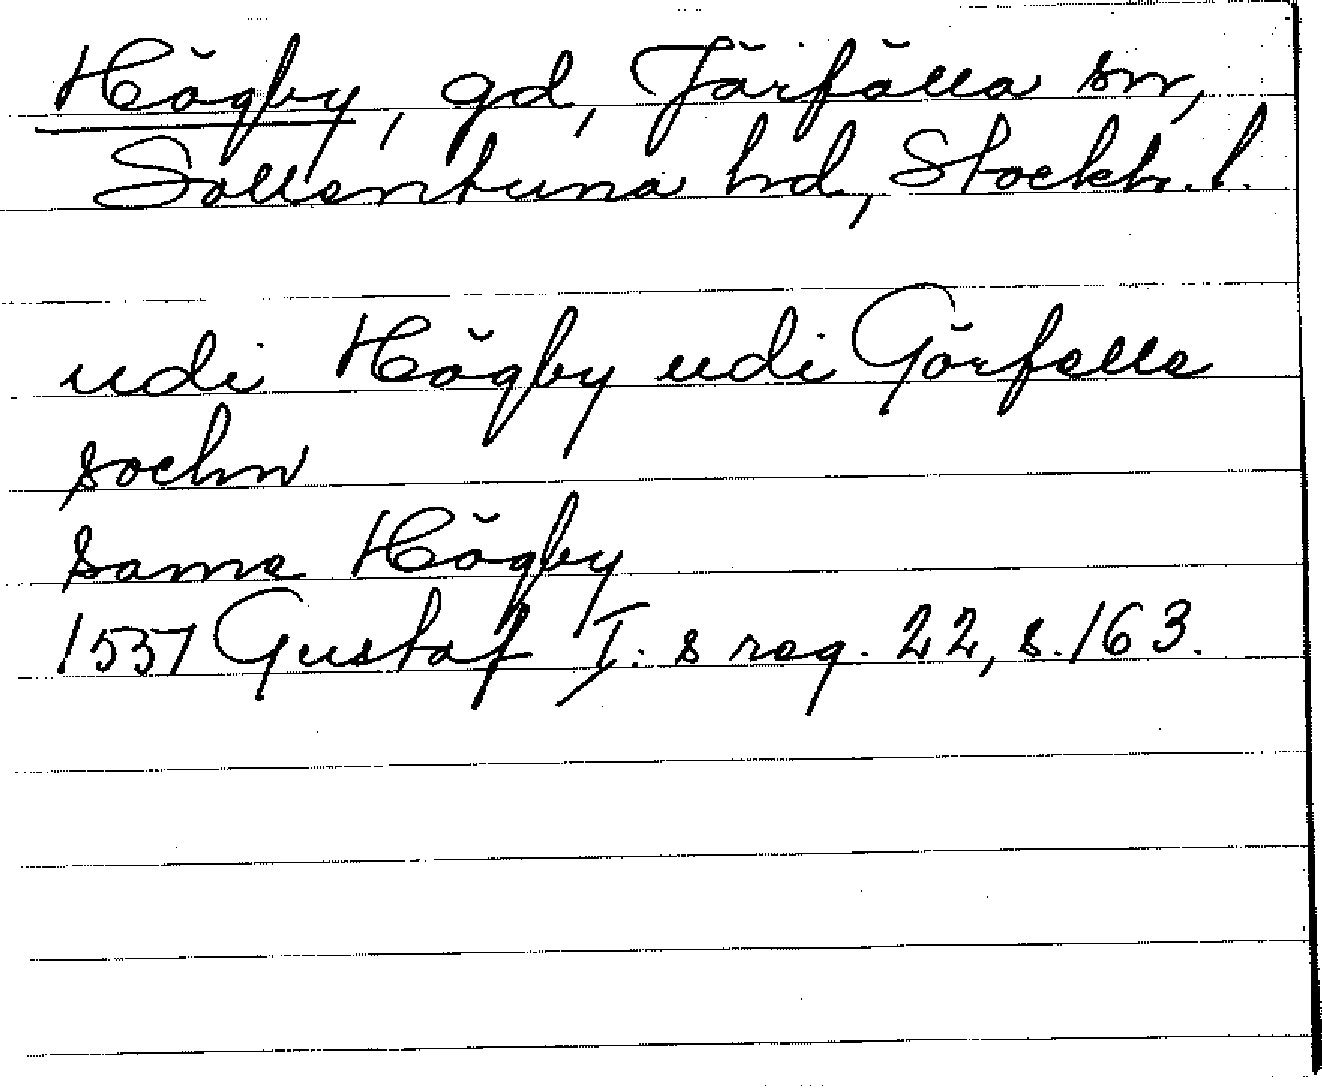 Högby, gd, Järfälla sn,
Sollentuna hd, Stockh. l.
udi Högby udi Görfelle
sochn
same Högby
1537 Gustaf I:s reg. 22, s. 163.